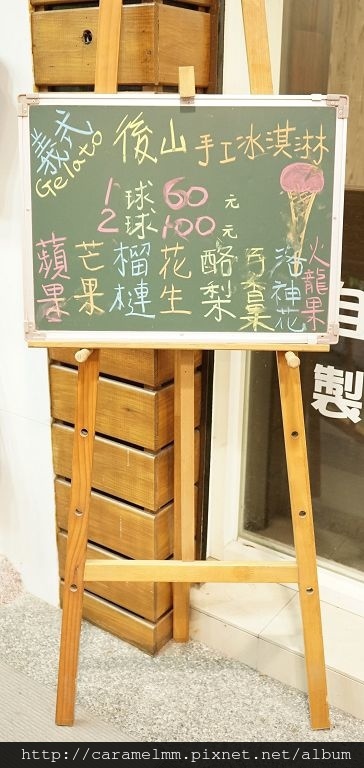 義式
Gelato
後山 手工冰淇淋
1球 60元
2球 100元
蘋果
芒果
榴槤
花生
酪梨
百香果
洛神花
火龍果
自製
http://caramelmm.pixnet.net/album